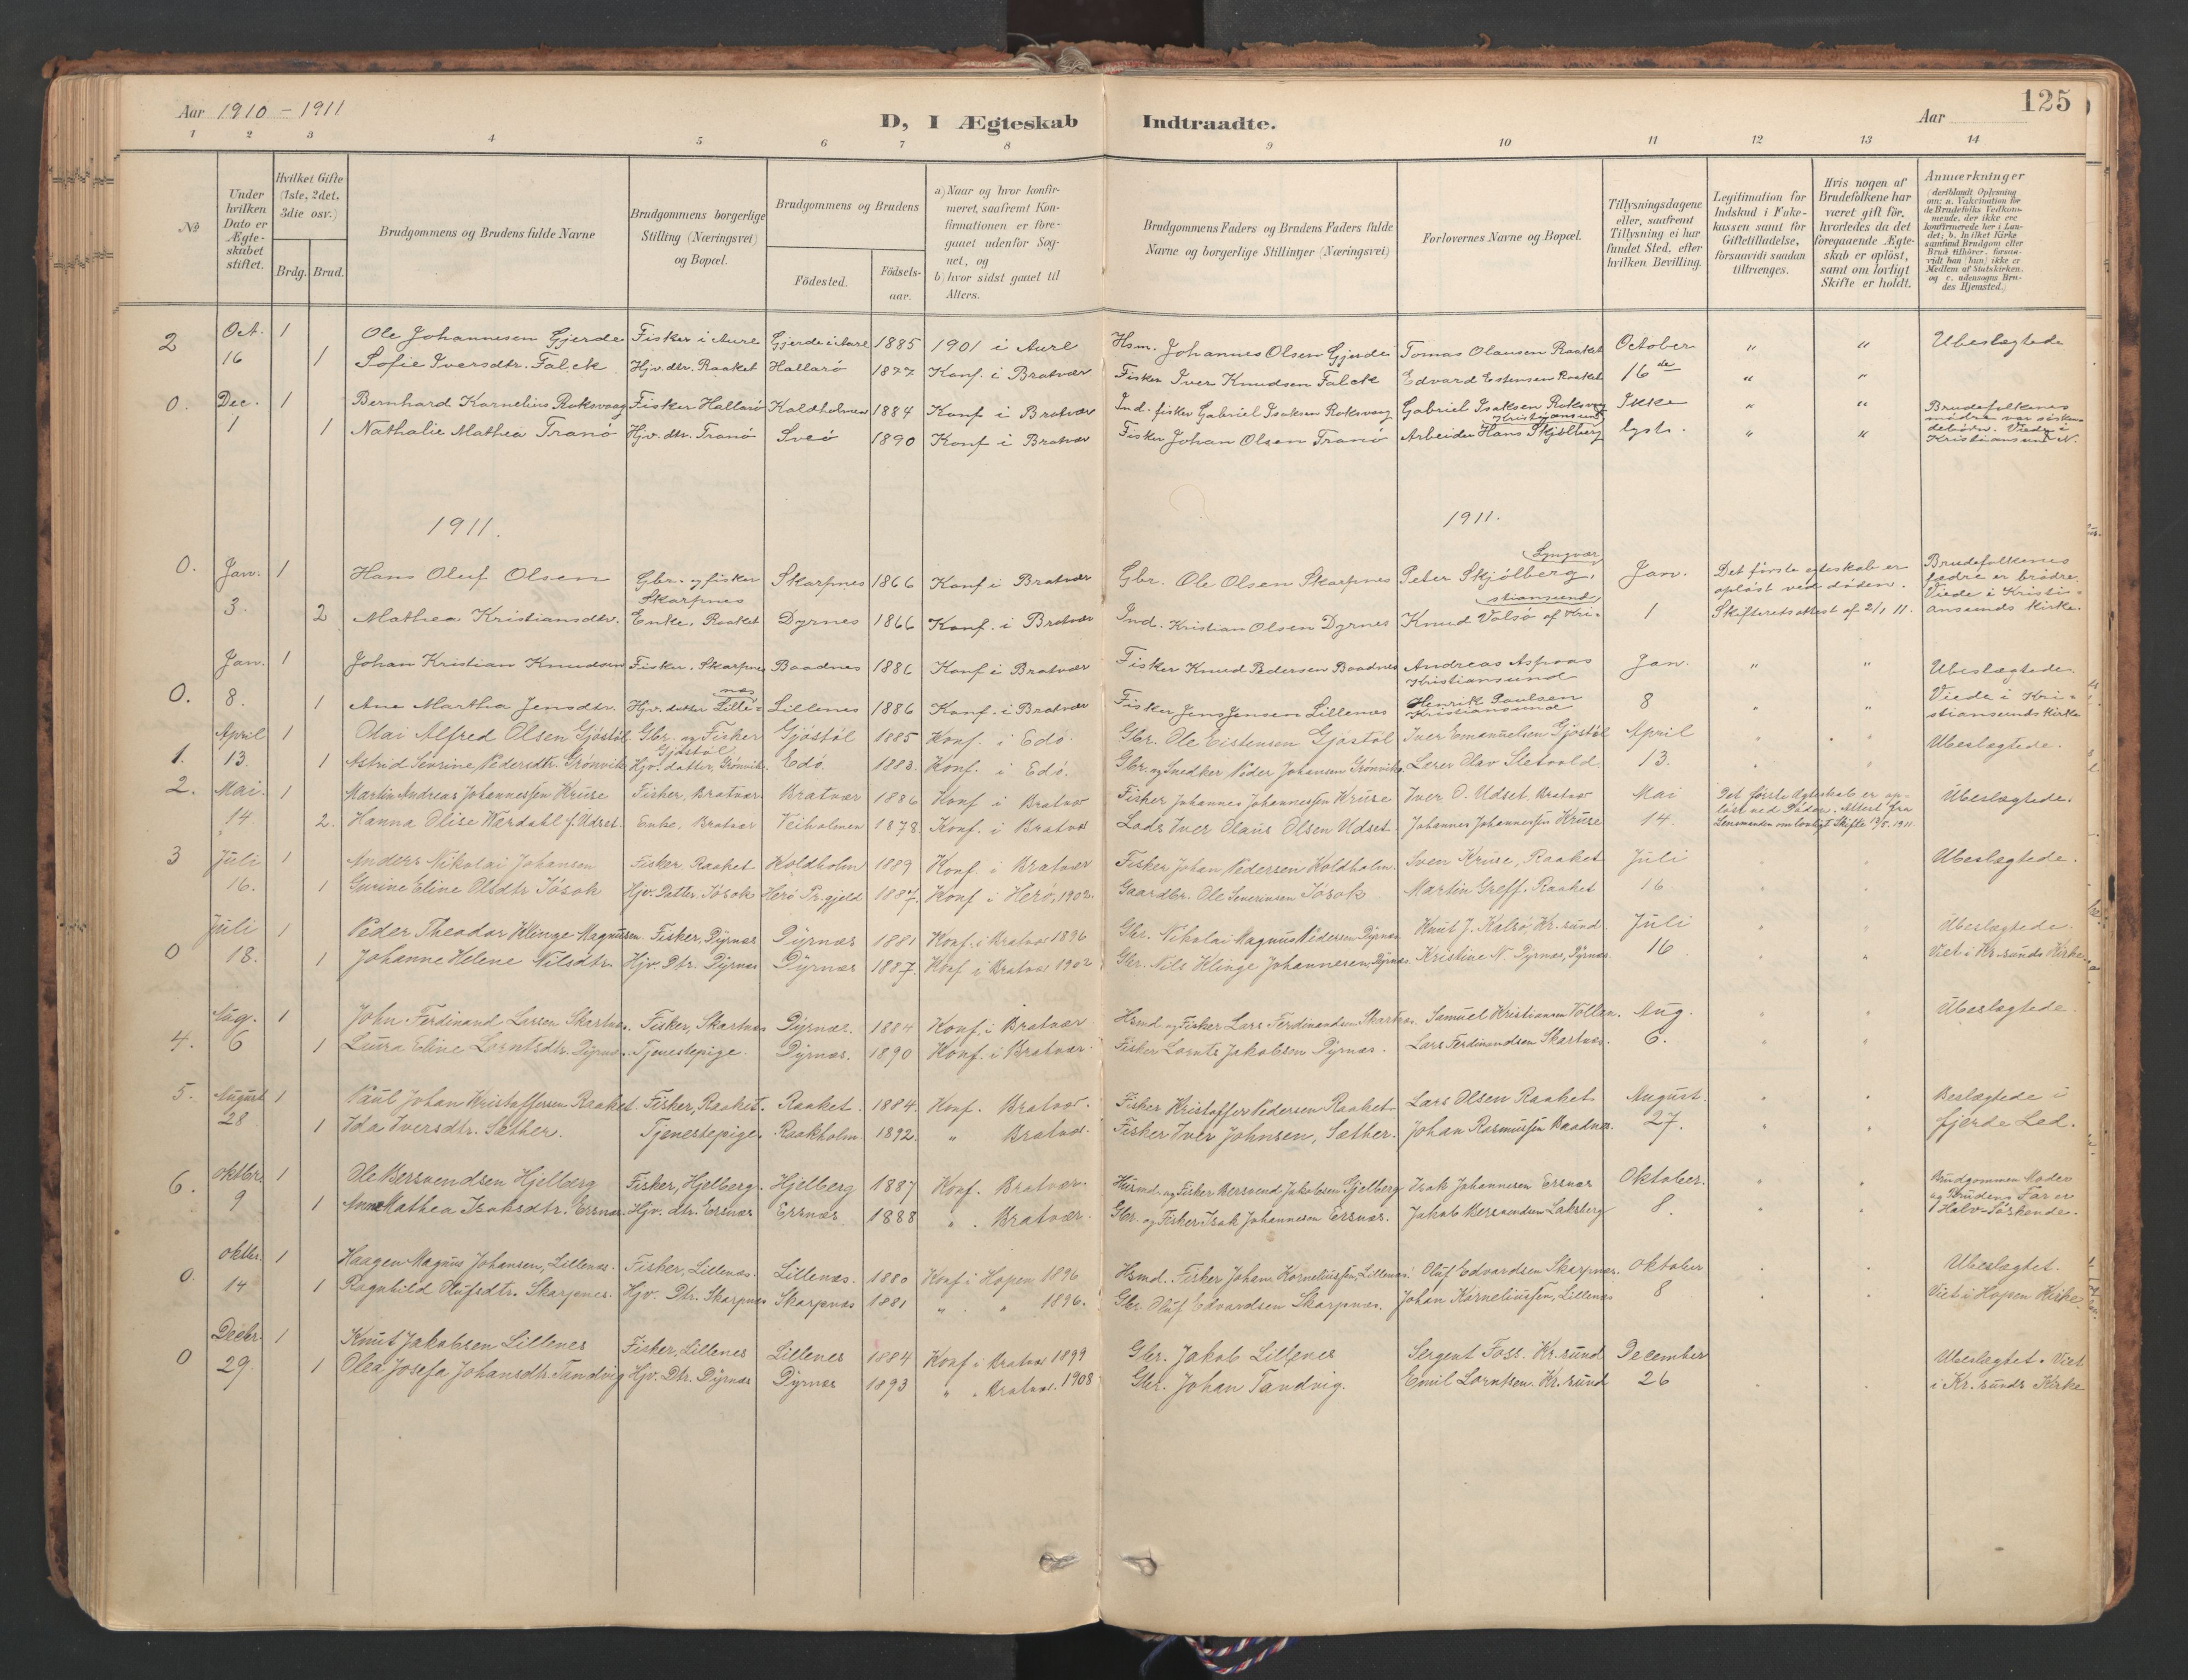 Aar 1910 – 1911
D, I Ægteskab Indtraadte.
Aar
125
1 2 3 4 5 6 7 8 9 10 11 12 13 14
№
Under hvilken Dato er Ægteskabet stiftet.
Hvilket Gifte (1ste, 2det, 3die osv.)
Brdg. Brud.
Brudgommens og Brudens fulde Navne
Brudgommens borgerlige Stilling (Næringsvei) og Bopæl.
Brudgommens og Brudens
Födested. Födsels-aar.
a) Naar og hvor konfirmeret, saafremt Konfirmationen er foregaaet udenfor Sognet, og
b) hvor sidst gaaet til Alters.
Brudgommens Faders og Brudens Faders fulde Navne og borgerlige Stillinger (Næringsvei)
Forlovernes Navne og Bopæl.
Tillysningsdagene eller, saafremt Tillysning ei har fundet Sted, efter hvilken Bevilling.
Legitimation for Indskud i Enkekassen samt for Giftetilladelse, forsaavidt saadan tiltrænges.
Hvis nogen af Brudefolkene har været gift för, hvorledes da det foregaaende Ægteskab er oplöst, samt om lovligt Skifte er holdt.
Anmærkninger (deriblandt Oplysning om: a. Vakcination for de Brudefolks Vedkommende, der ikke ere konfirmerede her i Landet; b. hvilket Kirkesamfund Brudgom eller Brud tilhörer, forsaavidt han (hun) ikke er Medlem af Statskirken, og c. udensogns Brudes Hjemsted.)
2 Oct. 1 Ole Johannesen Gjerde Fisker i Aure Gjerde i Aure 1885 1901 i Aure Hsm. Johannes Olsen Gjerde Tomas Olausen Raaket October " " Ubeslægtede
16 1 Sofie Iversdtr. Falck Hjv. dtr. Raaket Hallarö 1877 Konf. i Bratvær Fisker Iver Knudsen Falck Edvard Estensen Raaket 16de " "
0. Dec. 1 Bernhard Karnelius Roksvaag Fisker Hallarö Koldholmen 1884 Konf i Bratvær Ind. fisker Gabriel Isaksen Roksvaag Gabriel Isaksen Roksvaag Ikke " " Brudefolkenes mödre var söskendebörn. Viede i Kristiansund N.
1 1 Nathalie Mathea Tranö Hjv. dtr. Tranö Sveö 1890 Konf i Bratvær Fisker Johan Olsen Tranö Arbeider Hans Skjölberg Kristiansund lyst. " "
1911. 1911.
0. Jan. 1 Hans Oluf Olsen Gbr. og fisker Skarpnes Skarpnes 1866 Konf i Bratvær Gbr. Ole Olsen Skarpnes Peter Skjölberg, Lyngvær Jan. Det förste egteskab er oplöst ved döden. Brudefolkenes fædre er brödre.
3. 2 Mathea Kristiansdtr. Enke, Raaket Dyrnes 1866 Konf. i Bratvær Ind. Kristian Olsen Dyrnes Knud Volsö af Kristiansund 1 Skifteretsattest af 2/1 11. Viede i Kristiansunds kirke.
Jan. 1 Johan Kristian Knudsen Fisker. Skarpnes Baadnes 1886 Konf. i Bratvær Fisker Knud Pedersen Baadnes Andreas Aspaas Kristiansund Jan. " " Ubeslægtede
0. 8. 1 Ane Martha Jensdtr. Hjv. datter Lillenes Lillenes 1886 Konf. i Bratvær Fisker Jens Jensen Lillenæs Henrik Paulsen Kristiansund 8 " " Viede i Kristiansunds kirke
April 1 Olai Alfred Olsen Gjöstöl Gbr. og Fisker Gjöstöl Gjöstöl 1885 Konf. i Edö. Gbr. Ole Eistensen Gjöstöl Iver Emanuelsen Gjöstöl April " " Ubeslægtede.
1. 13. 1 Astrid Severine Pedersdtr. Grönvik Hjv. datter, Grönvik. Edö. 1883. Konf. i Edö. Gbr. og Snedker Peder Johansen Grönvik. Lærer Olav Sletvold. 13. " "
2. Mai. 1 Martin Andreas Johannessen Kruse Fisker, Bratvær Bratvær 1886 Konf i Bratvær Fisker Johannes Johannessen Kruse Iver O. Udset, Bratvær Mai Det förste Ægteskab er oplöst ved Döden. Attest fra Lensmanden om lovligt Skifte 12/5. 1911 Ubeslægtede.
14. 2. Hanna Olise Werdahl f. Udset. Enke, Bratvær Veiholmen 1878. Konf. i Bratvær Lods Iver Olaus Olsen Udset. Johannes Johannessen Kruse 14.
3 Juli 1 Anders Nikolai Johansen Fisker, Raaket Koldholm 1889 Konf. i Bratvær Fisker Johan Pedersen Koldholm. Sven Kruse, Raaket Juli " " Ubeslægtede.
16. 1 Gurine Eline Olsdtr Jösok Hjv. Datter Jösok Herö Pr.gjeld 1887. Konf i Herö, 1902. Gaardbr. Ole Severinsen Jösok Martin Greff. Raaket 16. " "
Juli 1 Peder Theodor Klinge Magnusen. Fisker, Dyrnæs Dyrnæs 1881 Konf. i Bratvær 1896 Gbr. Nikolai Magnus Pedersen Dyrnæs Knut J. Kalsö, Kr.sund. Juli " " Ubeslægtede.
0 18. 1 Johanne Helene Nilsdtr. Hjv. Dtr. Dyrnæs Dyrnæs 1887. Konf i Bratvær 1902 Gbr. Nils Klinge Johannesen, Dyrnæs. Kristine N. Dyrnæs, Dyrnæs. 16 " " Viet i Kr.sunds Kirke.
Aug. 1 John Ferdinand Larsen Skartnæs. Fisker, Skartnæs Dyrnæs. 1884 Konf. i Bratvær Hsmd. og Fisker Lars Ferdinandsen Skartnæs. Samuel Kristiansen Vollan. Aug. " " Ubeslægtede.
4. 6 1 Laura Eline Lorntsdtr. Dyrnæs. Tjenestepige. Dyrnæs. 1890 Konf. i Bratvær. Fisker Lornts Jakobsen Dyrnæs. Lars Ferdinandsen Skartnæs. 6. " "
5. August 1 Paul Johan Kristoffersen Raaket. Fisker, Raaket. Raaket. 1884. Konf. Bratvær. Fisker Kristoffer Pedersen Raaket. Lars Olsen Raaket August. " " Beslægtede i
28 1 Ida Iversdtr. Sæther. Tjenestepige. Raakholm 1892. " Bratvær. Fisker Iver Johnsen, Sæther. Johan Rasmussen Baadnæs. 27. " " fjerde Led.
6. Oktbr. 1 Ole Bersvendsen Hjelberg Fisker, Hjelberg. Hjelberg 1887 Konf. Bratvær. Husmd. og Fisker Bersvend Jakobsen Hjelberg Isak Johannesen Ersnæs Oktober. " " Brudgommen Moder og Brudens Far er Halv-Söskende.
9 1 Anne Mathea Isaksdtr. Ersnæs. Hjv. dtr. Ersnæs Ersnæs 1888 " Bratvær. Gbr. og Fisker Isak Johannesen Ersnæs. Jakob Bersvendsen Laksberg 8. " "
Oktbr. 1 Haagen Magnus Johansen, Lillenæs. Fisker, Lillenæs. Lillenæs. 1880 Konf i Hopen 1896 Hsmd. Fisker Johan Korneliussen, Lillenæs. Oluf Edvardsen Skarpnæs. Oktober " " Ubeslægtet.
0. 14 1 Ragnhild Olufsdtr. Skarpnes. Hjv. Dtr. Skarpnæs Skarpnæs 1881 " " 1896. Gbr. Oluf Edvardsen Skarpnæs. Johan Korneliussen, Lillenæs 8 " " Viet i Hopen Kirke.
Decbr. 1 Knut Jakobsen Lillenes Fisker, Lillenes Lillenes 1884 Konf i Bratvær 1899 Gbr. Jakob Lillenes Sergent Foss. Kr.sund December Ubeslægtet. Viet
0 29. 1 Olea Josefa Johansdtr. Tandvig Hjv. Dtr. Dyrnæs Dyrnæs 1893 " Bratvær. 1908 Gbr. Johan Tandvig. Emil Lorntsen. Kr.sund 26 " " i Kr.sunds Kirke